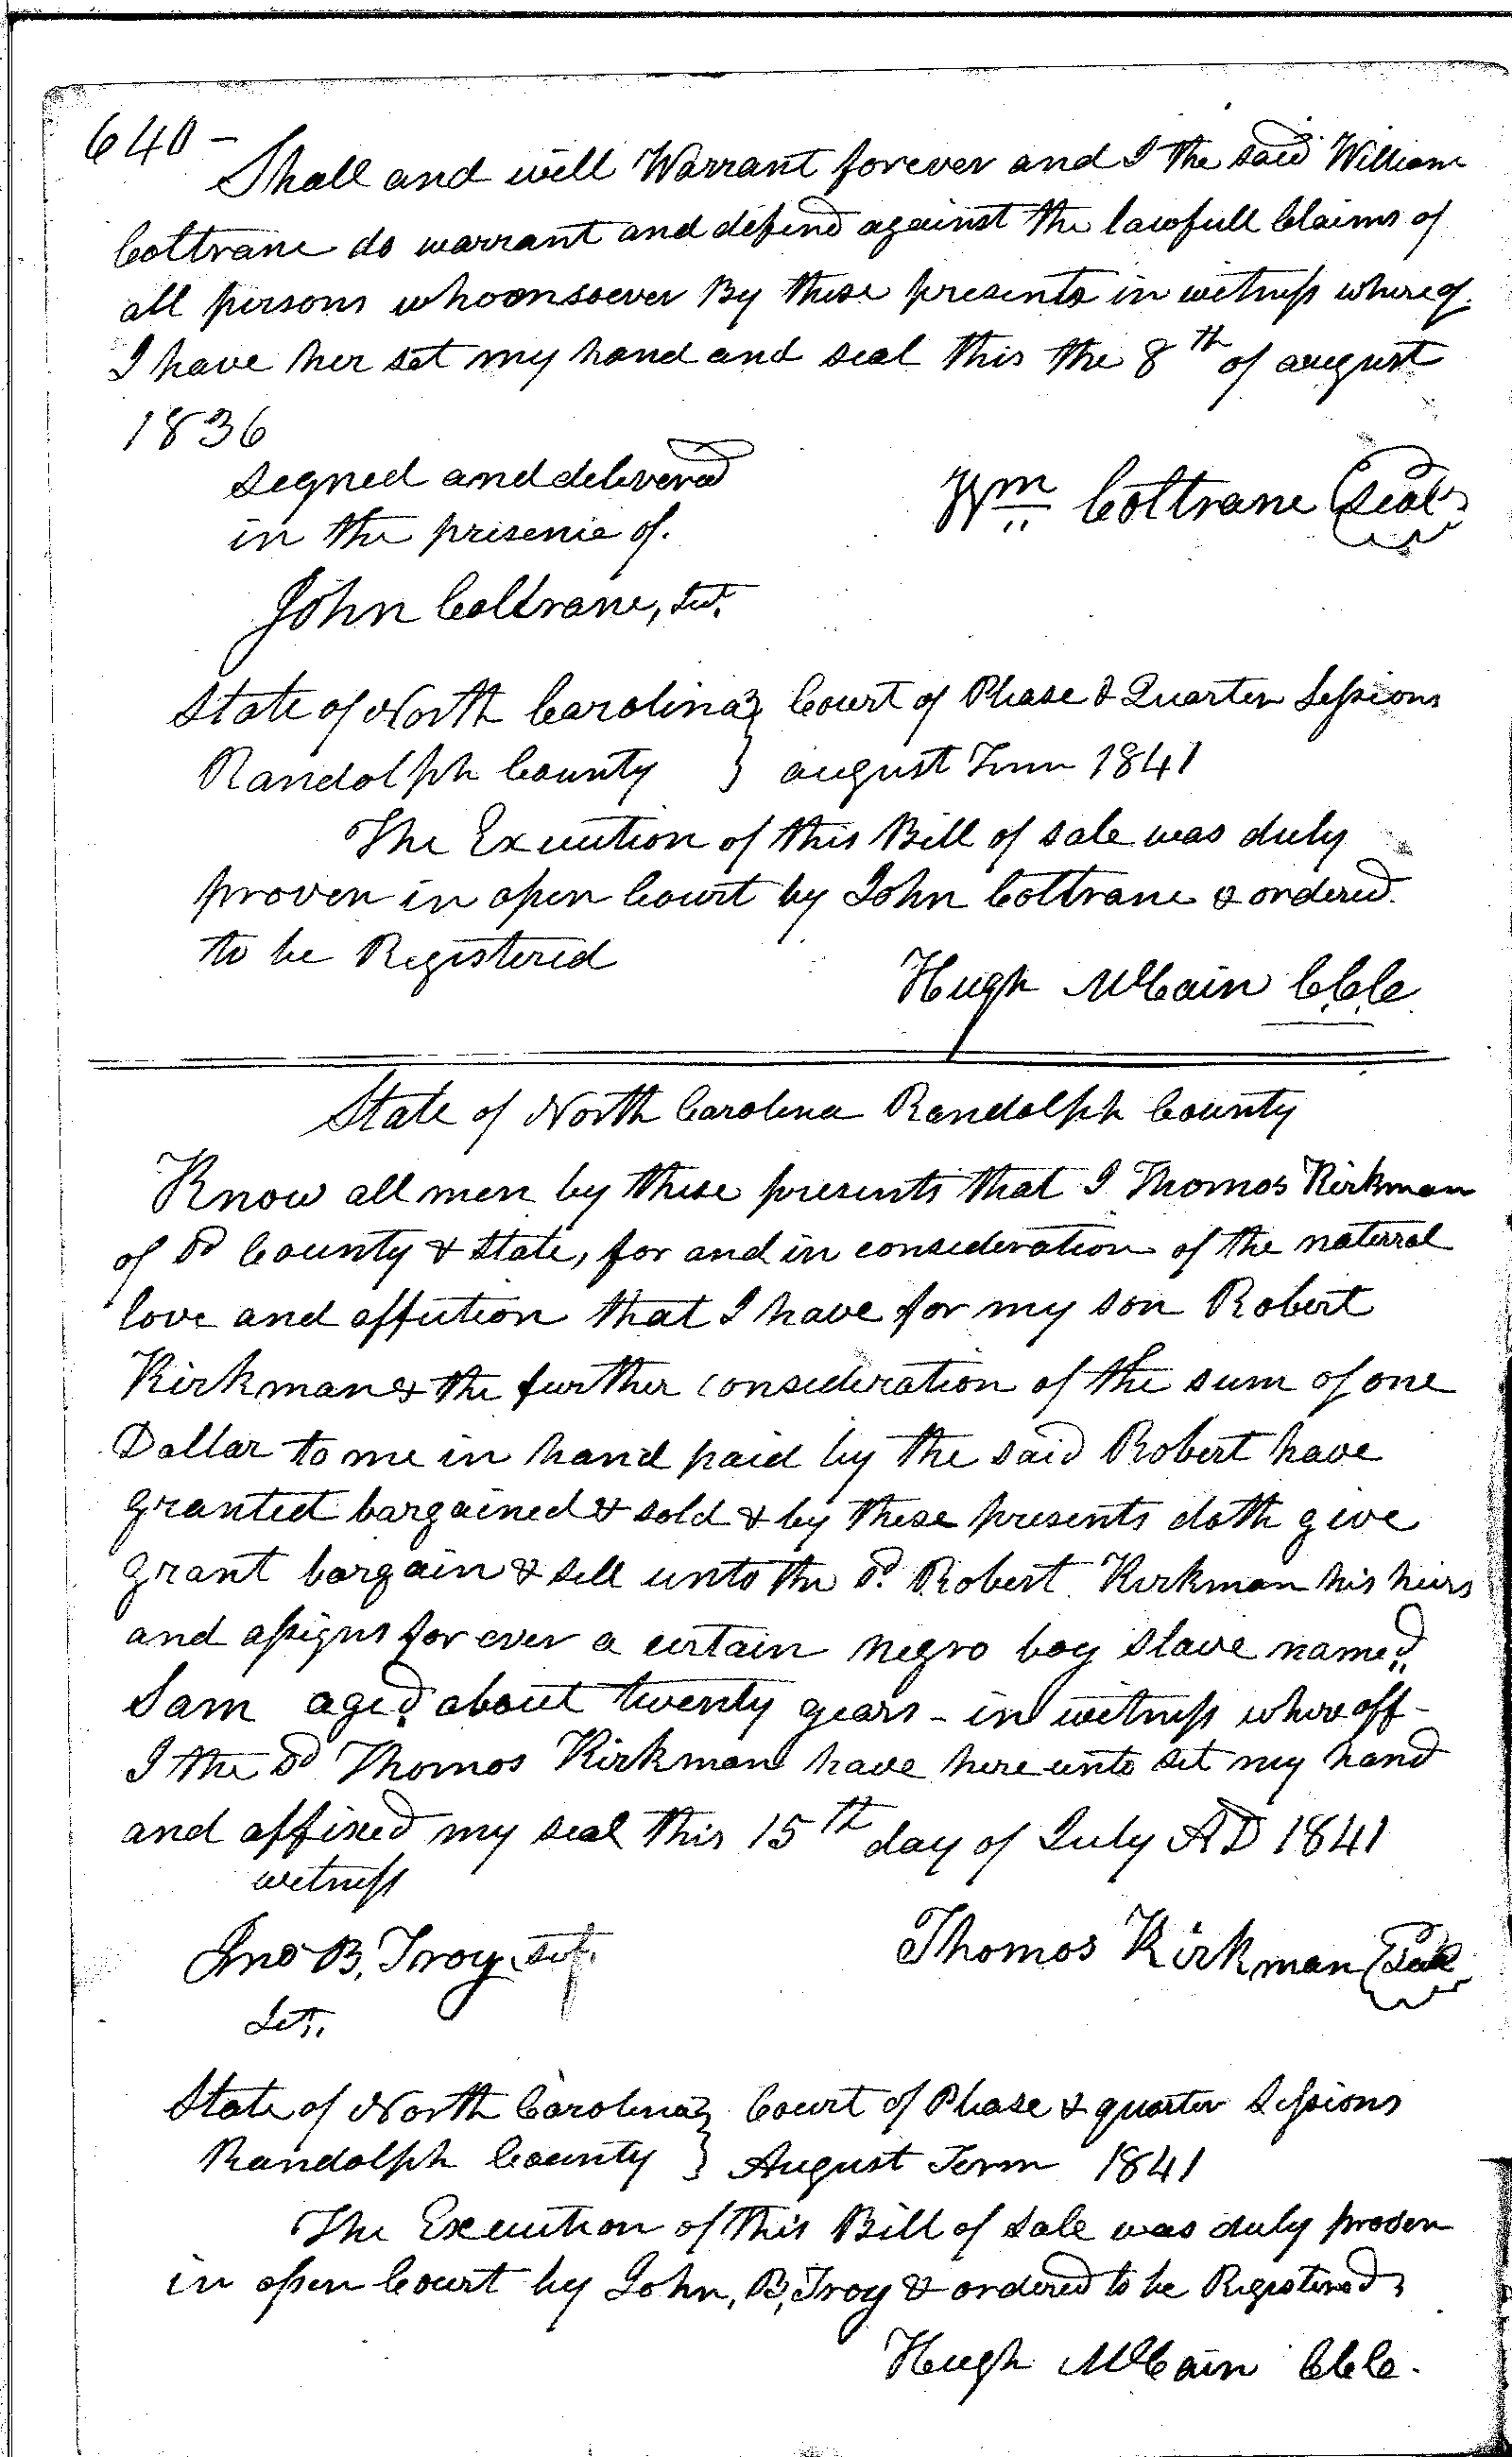 640 -
Shall and will Warrant forever and I the said William
Coltrane do warrant and defend against the lawfull Claims of
all persons whoomsoever By these presents in witness whereof
I have her set my hand and seal this the 8th of august
1836
signed and delivered
in the presence of.
Wm Coltrane (Seal)
John Coltrane,
State of North Carolina } Court of Please & Quarter Sessions
Randolph County } august Term 1841
The Execution of this Bill of sale was duly
proven in open Court by John Coltrane & ordered
to be Registered
Hugh McCain C.C.C.
State of North Carolina Randolph County
Know all men by these presents that I Thomas Kirkman
of sd County & State, for and in consideration of the natural
love and affection that I have for my son Robert
Kirkman & the further consideration of the sum of one
Dollar to me in hand paid by the said Robert have
granted bargained & sold & by these presents doth give
grant bargain & sell unto the sd. Robert Kirkman his heirs
and assigns for ever a certain negro boy slave named
Sam aged about twenty years - in witness whereoff -
I the sd Thomas Kirkman have here unto set my hand
and affixed my seal this 15th day of July AD 1841
witness
Jno B. Troy
Thomas Kirkman (Seal)
State of North Carolina } Court of Please & quarter Sessions
Randolph County } August Term 1841
The Execution of this Bill of Sale was duly proven
in open Court by John, B, Troy & ordered to be Registered,
Hugh McCain CCC.